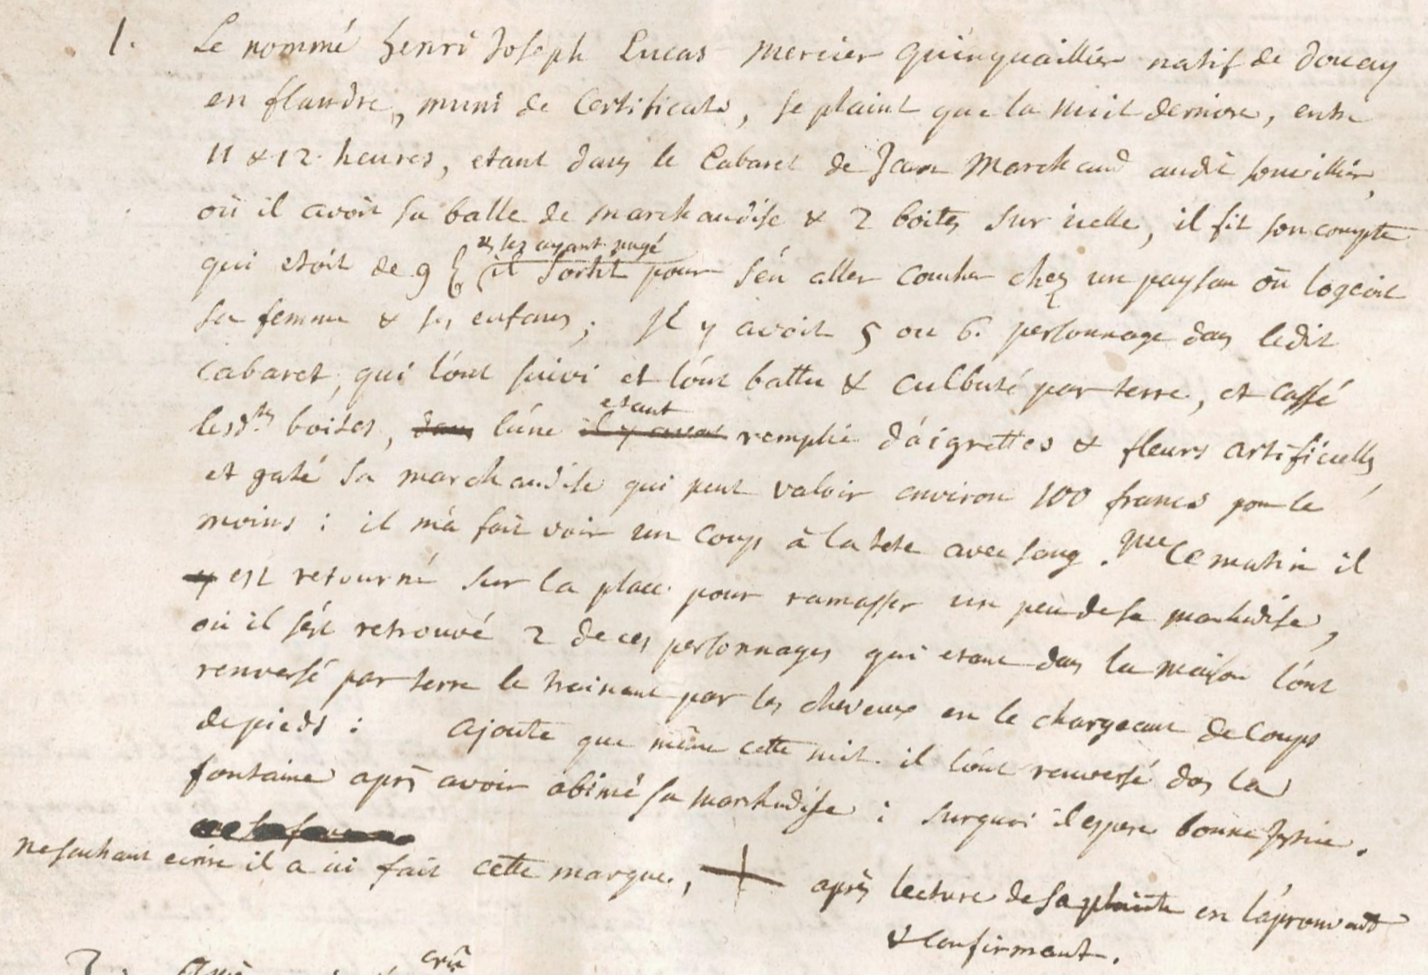 1. Le nommé henri Joseph Lucas mercier quinquaillier natif de douay
en flandre, muni de Certificats, se plaint que la nuit derniere, entre
11 & 12 heures, etant dans le Cabaret de Jean Marchand audit sonvillier,
où il avoit sa balle de marchandise & 2 boites sur icelle, il fit son compte
& les ayant payé
qui etoit de 9 il sortit pour s'en aller coucher chez un paysan où logeoit
sa femme & ses enfans; Il y avoit 5 ou 6. personnage dans ledit
Cabaret, qui l'ont suivi et l'ont battu & culbuté par terre, et cassé
etant
lesd.tes boites, dans l'une il y avoit remplie d'aigrettes & fleurs artificielles,
et gaté sa marchandise qui peut valoir environ 100 francs pour le
moins : il m'a fait voir un coup à la tete avec sang. que Ce matin il
y est retourné sur la place pour ramasser un peu de sa marchdise,
où il s'est retrouvé 2 de ces personnages qui etant dans la maison l'ont
renversé par terre le trainant par les cheveux en le chargeant de Coups
de pieds : ajoute que même cette nuit il l'ont renversé dans la
fontaine après avoir abimé sa marchdise : surquoi il espere bonne Justice.
ne sachant ecrire il a ici fait cette marque, + après lecture de sa plainte en l'aprouvant
& confirmant.